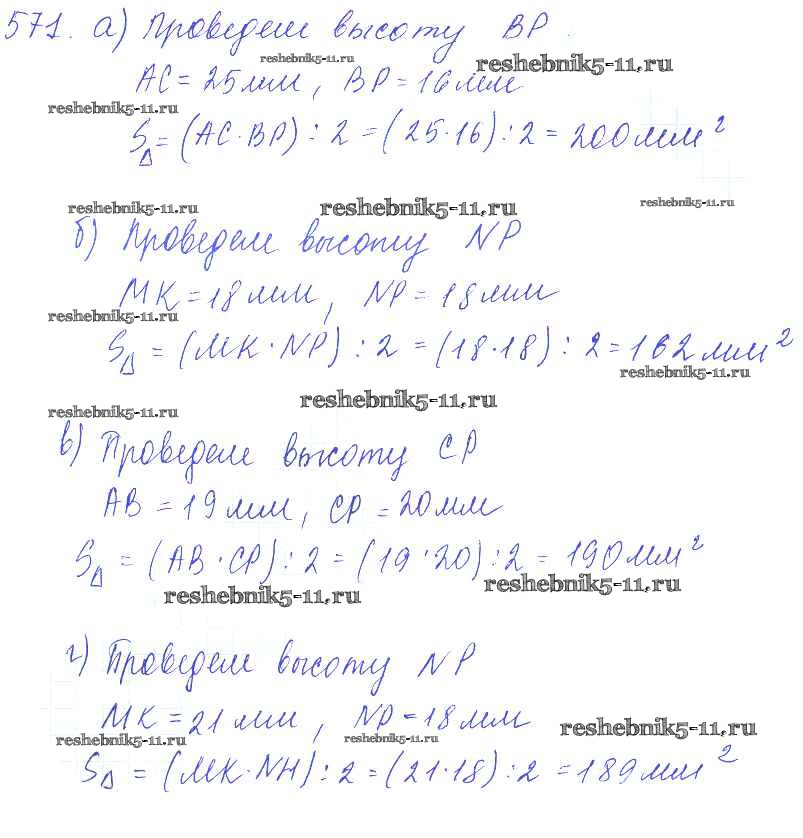 571. а) Проведем высоту BP.
reshebnik5-11.ru reshebnik5-11.ru
AC = 25 мм, BP = 16 мм
reshebnik5-11.ru
S△ = (AC · BP) : 2 = (25 · 16) : 2 = 200 мм²
reshebnik5-11.ru reshebnik5-11.ru reshebnik5-11.ru
б) Проведем высоту NP
MK = 18 мм, NP = 18 мм
reshebnik5-11.ru
S△ = (MK · NP) : 2 = (18 · 18) : 2 = 162 мм²
reshebnik5-11.ru
reshebnik5-11.ru reshebnik5-11.ru
в) Проведем высоту CP
AB = 19 мм, CP = 20 мм
S△ = (AB · CP) : 2 = (19 · 20) : 2 = 190 мм²
reshebnik5-11.ru reshebnik5-11.ru
г) Проведем высоту NP
MK = 21 мм, NP = 18 мм
reshebnik5-11.ru reshebnik5-11.ru reshebnik5-11.ru
S△ = (MK · NH) : 2 = (21 · 18) : 2 = 189 мм²